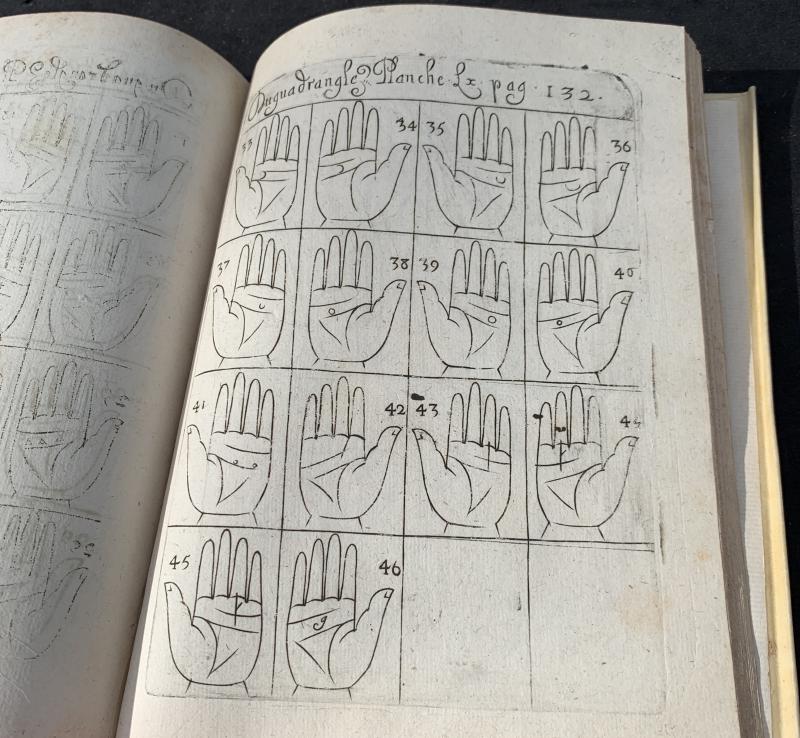 Du quadrangle Planche Lx. pag. 132.
33 34 35 36
37 38 39 40
41 42 43 44
45 46